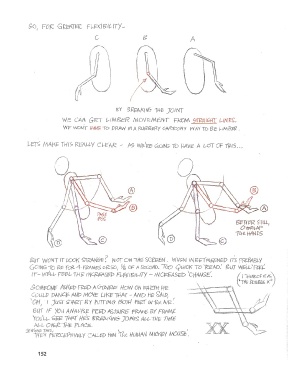 SO, FOR GREATER FLEXIBILITY —
C B A
BY BREAKING THE JOINT
WE CAN GET LIMBER MOVEMENT FROM STRAIGHT LINES.
WE WON'T HAVE TO DRAW IN A RUBBERY CARTOONY WAY TO BE LIMBER.
LET'S MAKE THIS REALLY CLEAR — AS WE'RE GOING TO HAVE A LOT OF THIS...
A
B
C
D
A
B
C
D
BUT WON'T IT LOOK STRANGE? NOT ON THE SCREEN. WHEN INBETWEENED IT'S PROBABLY
GOING TO BE FOR 4 FRAMES OR SO, 1/6 OF A SECOND. TOO QUICK TO 'READ.' BUT WE'LL FEEL
IT — WE'LL FEEL THE INCREASED FLEXIBILITY — INCREASED 'CHANGE.'
SOMEONE ASKED FRED ASTAIRE HOW ON EARTH HE
COULD DANCE AND MOVE LIKE THAT — AND HE SAID,
'OH, I JUST START BY PUTTING MY FEET IN THE AIR.'
BUT IF YOU ANALYSE FRED ASTAIRE FRAME BY FRAME
YOU'LL SEE THAT HE'S BREAKING JOINTS ALL THE TIME
ALL OVER THE PLACE.
HE'S CALLED HIM 'THE HUMAN MICKEY MOUSE'.
XX
192